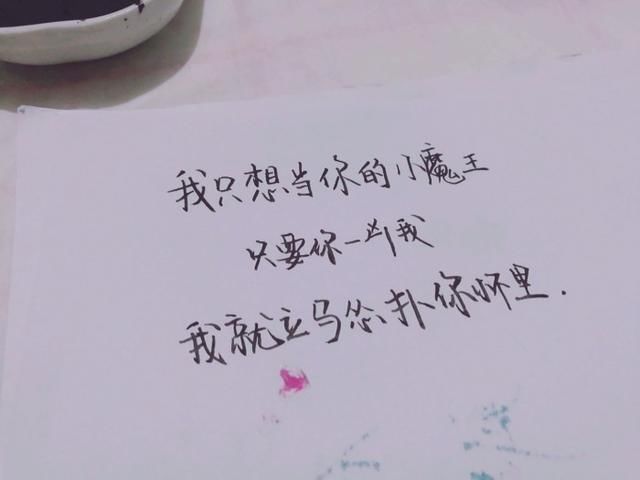 我只想当你的小魔王
只要你一凶我
我就立马怂扑你怀里.